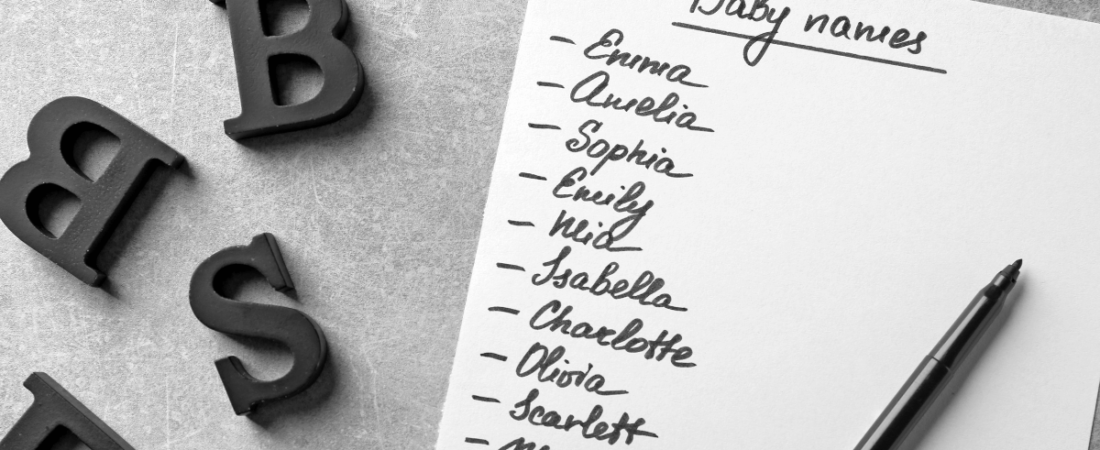 Baby names
- Emma
- Amelia
- Sophia
- Emily
- Mia
- Isabella
- Charlotte
- Olivia
- Scarlett
B
B
S